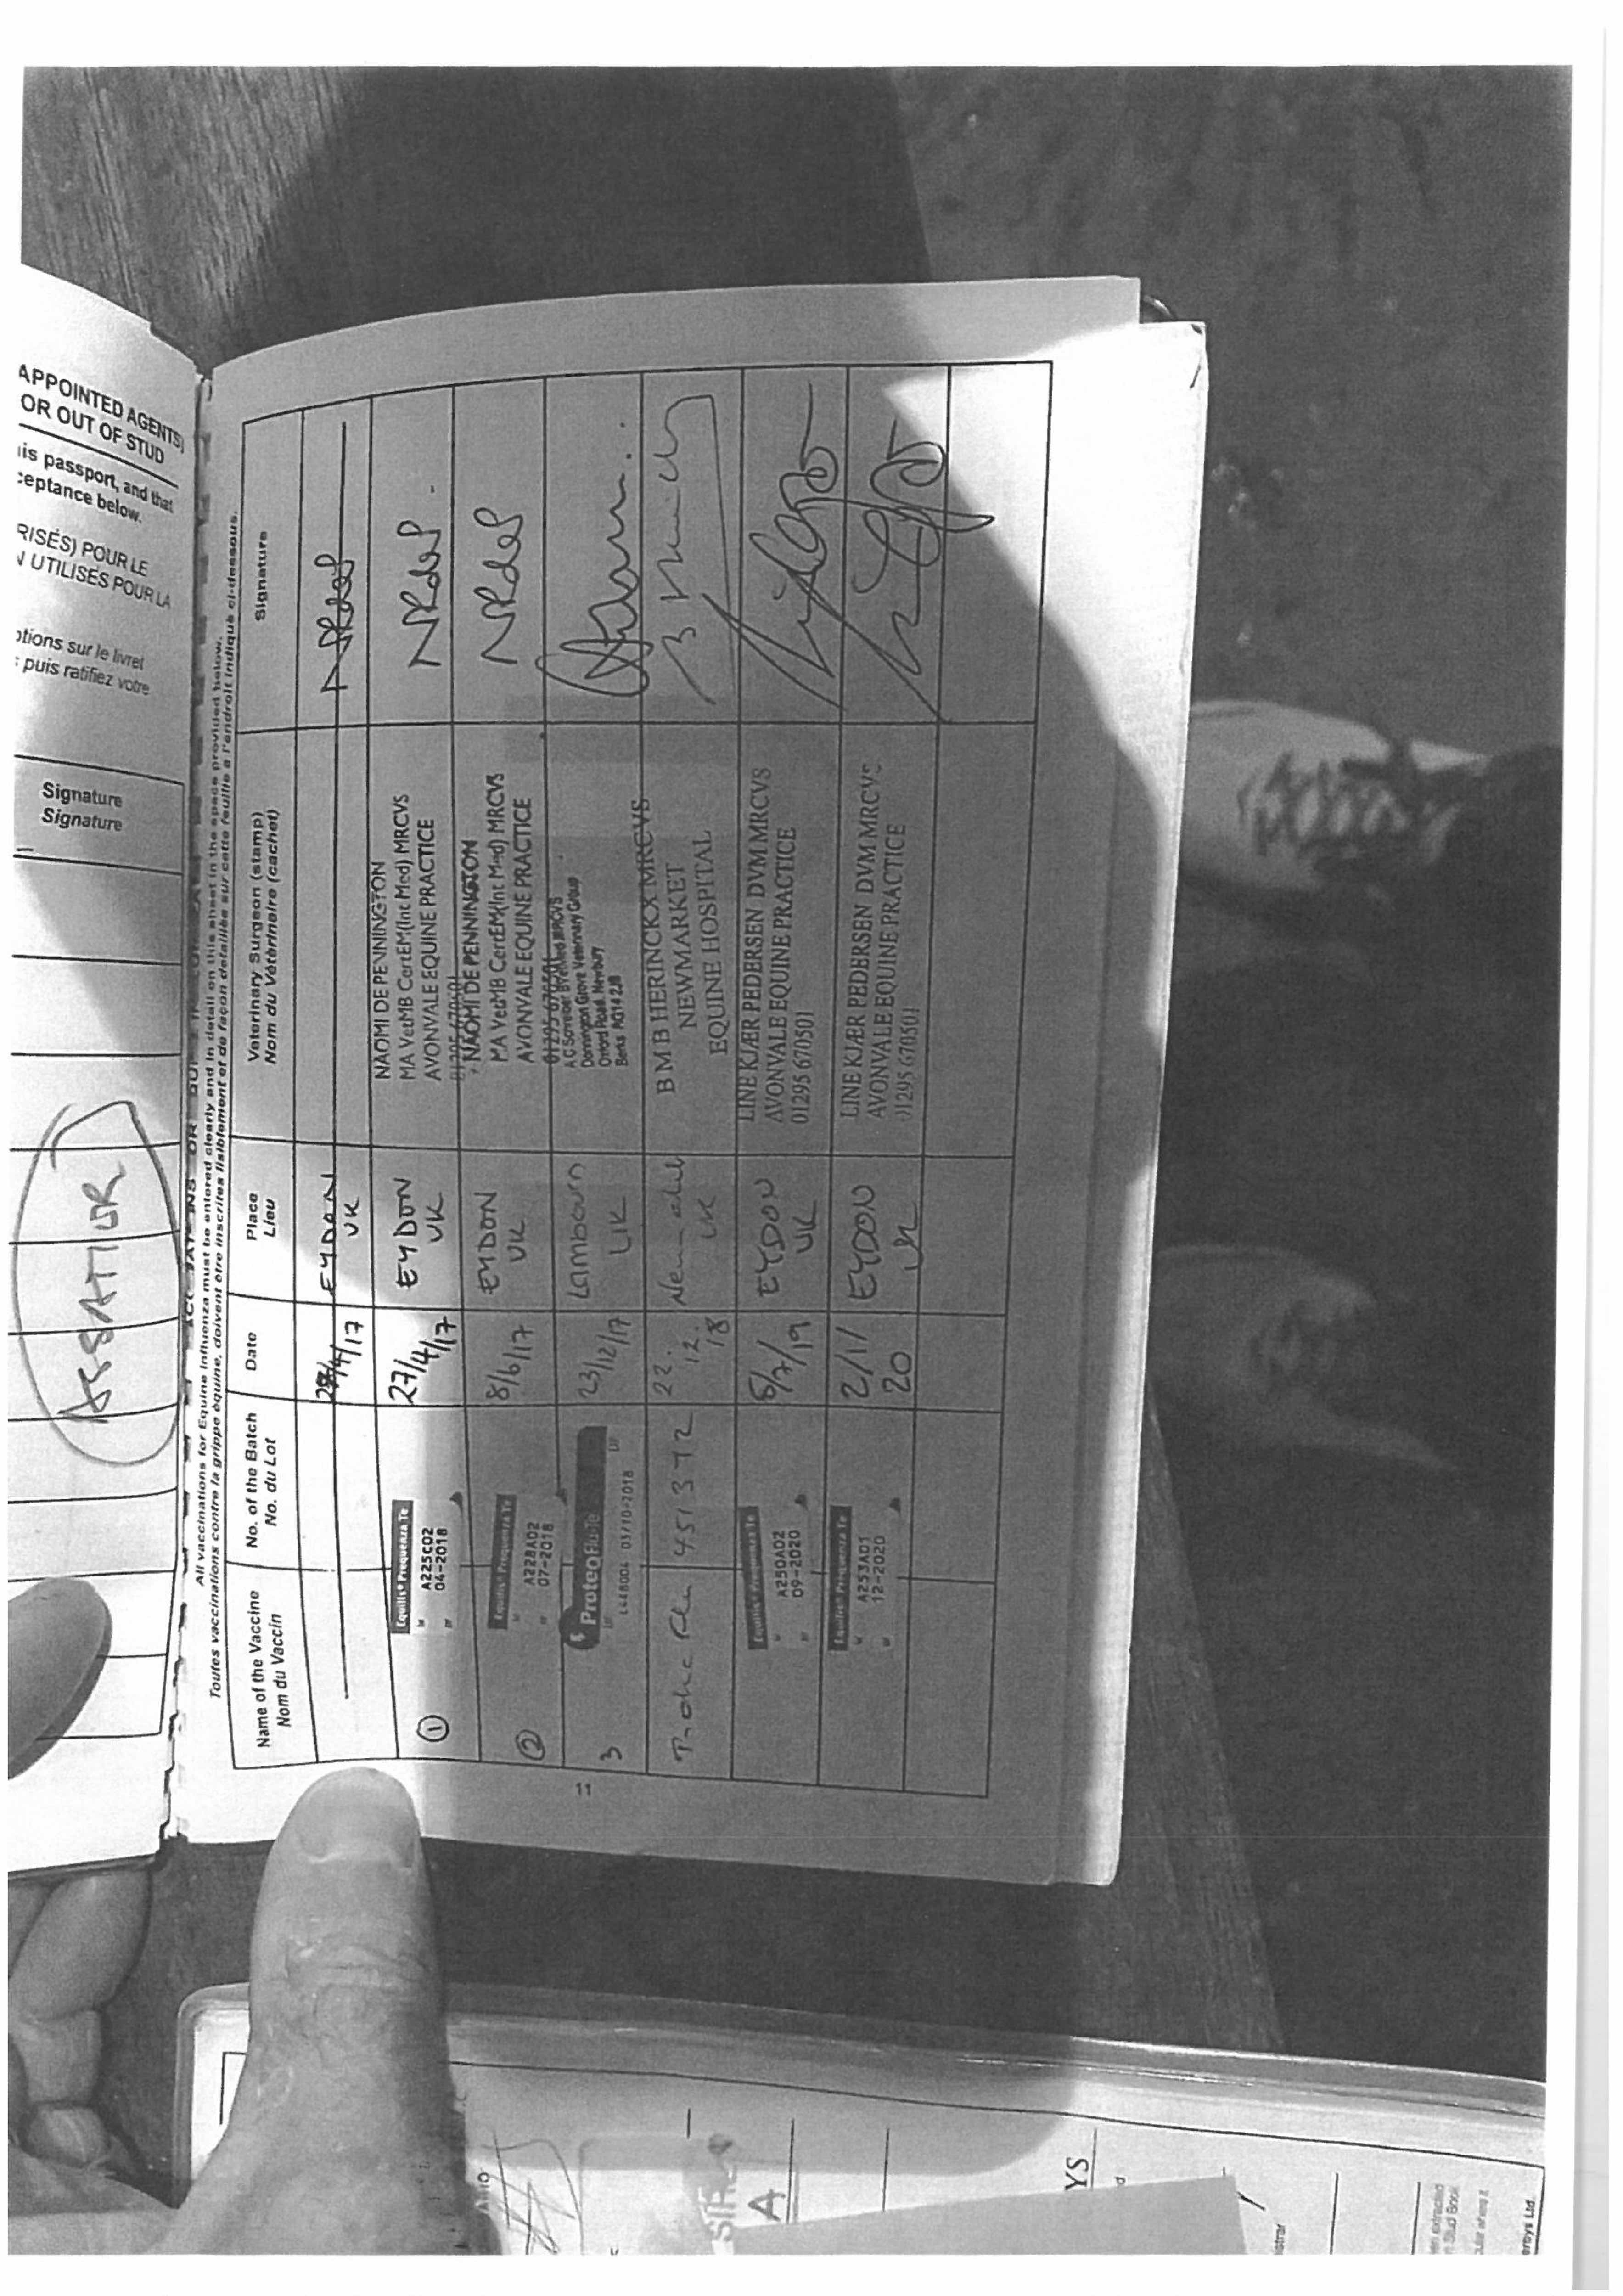 APPOINTED AGENTS)
OR OUT OF STUD
is passport, and that
ceptance below.
RISÉS) POUR LE
UTILISÉS POUR LA
ptions sur le livret
puis ratifiez votre
Signature
Signature
ASSATUR
All vaccinations for Equine Influenza must be entered clearly and in detail on this sheet in the space provided below.
Toutes vaccinations contre la grippe équine, doivent être inscrites lisiblement et de façon detaillée sur cette feuille a l'endroit indiqué ci-dessous.
Name of the Vaccine
Nom du Vaccin
No. of the Batch
No. du Lot
Date
Place
Lieu
Veterinary Surgeon (stamp)
Nom du Vétérinaire (cachet)
Signature
/4/17
EYDON
UK
1
Equilis® Prequenza Te
A225C02
04-2018
27/4/17
EYDON
UK
NAOMI DE PENNINGTON
MA VetMB CertEM(Int Med) MRCVS
AVONVALE EQUINE PRACTICE
01295 670501
2
Equilis® Prequenza Te
A228A02
07-2018
8/6/17
EYDON
UK
NAOMI DE PENNINGTON
MA VetMB CertEM(Int Med) MRCVS
AVONVALE EQUINE PRACTICE
01295 670501
3
ProteqFlu-Te
L448004 03/10-2018
23/12/17
Lambourn
UK
Donnington Grove Veterinary Group
Oxford Road, Newbury
Berks RG14 2JB
4513T2
22.
12.
18
UK
BMB HERINCKX MRCVS
NEWMARKET
EQUINE HOSPITAL
Equilis® Prequenza Te
A250A02
09-2020
/7/19
EYDON
UK
LINE KJÆR PEDERSEN DVM MRCVS
AVONVALE EQUINE PRACTICE
01295 670501
Equilis® Prequenza Te
A253A01
12-2020
2/1/
20
EYDON
UK
LINE KJÆR PEDERSEN DVM MRCVS
AVONVALE EQUINE PRACTICE
01295 670501
11
A
YS
istrar
extracted
Stud Book
eroys Ltd.